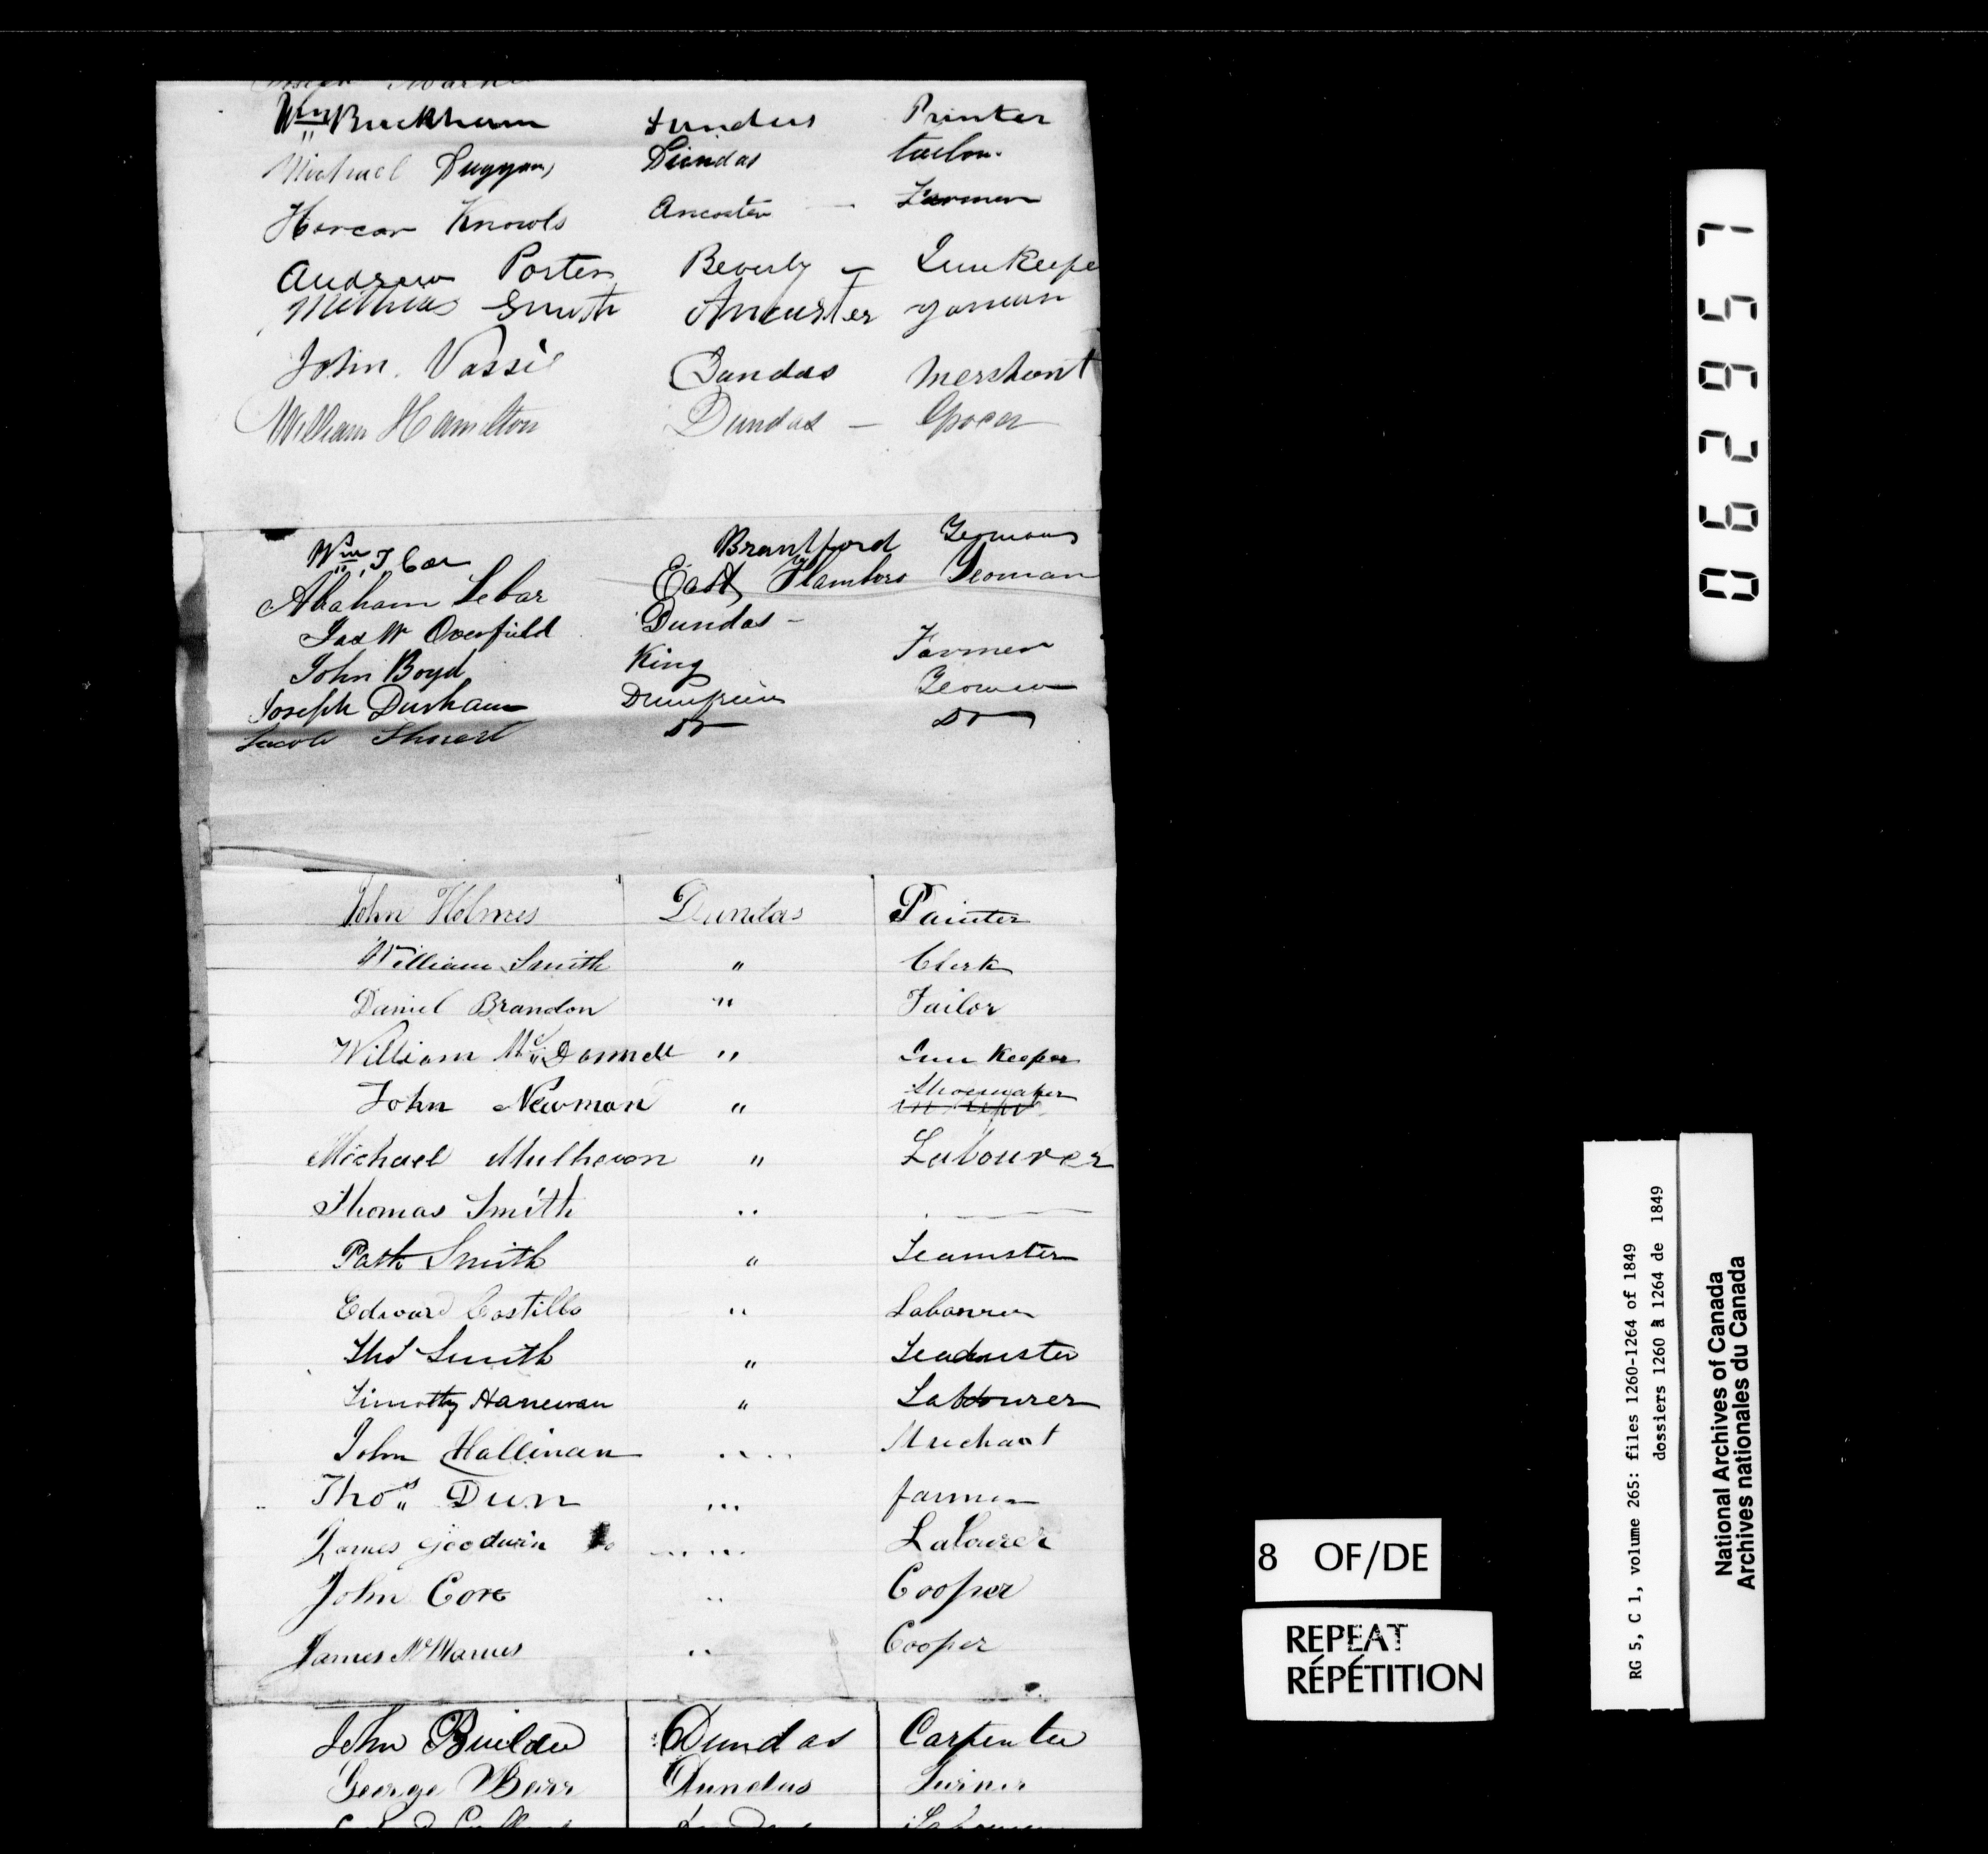 Joseph
Wm Buckham Dundas Printer
Michael Duggan Dundas tailor
Horcar Knowls Ancaster — Farmer
Andrew Porter Beverly — Innkeepe
Mathias Smith Ancuster yoman
John Vassie Dundas Mershant
William Hamilton Dundas — Grocer
Wm. J Coe Brantford Yeoman
Abraham Lebar East Flamboro Yeoman
Jas W Overfield Dundas -
John Boyd King Farmer
Joseph Durham Dumfries Yeoman
Jacob Do Do
John Holmes Dundas Painter
William Smith " Clerk
Daniel Brandon " Tailor
William McDonnell " Inn Keeper
John Newman " Shoemaker
Michael Mulheron " Labourer
Thomas Smith " —
Patk Smith " Teamster
Edward Costillo " Labourer
Thos Smith " Teamster
Timothy Hanewan " Labourer
John Hallinan " Merchant
Thos Dun " farmer
James Goodwin " Labourer
John Core " Cooper
James McManus " Cooper
John Builder Dundas Carpenter
George Barr Dundas Turner
062957
8 OF/DE
REPEAT
RÉPÉTITION
RG 5, C 1, volume 265: files 1260-1264 of 1849
dossiers 1260 à 1264 de 1849
National Archives of Canada
Archives nationales du Canada